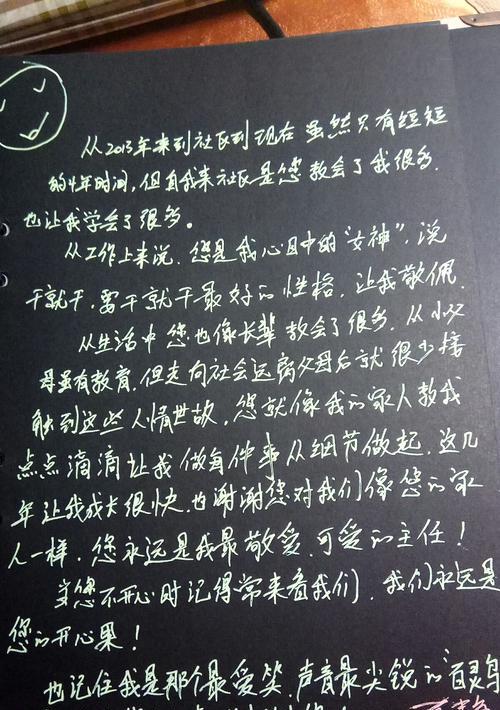 从2013年来到社区到现在 虽然只有短短
的4年时间,但自我来社区是您教会了我很多.
也让我学会了很多。
从工作上来说.您是我心目中的“女神”,说
干就干,要干就干最好的性格,让我敬佩.
从生活中您也像长辈教会了很多.从小父
母虽有教育.但走向社会远离父母后就很少接
触到这些人情世故,您就像我的家人教我
点点滴滴让我做每件事从细节做起.这几
年让我成长很快.也谢谢您对我们像您的家
人一样,您永远是我最敬爱.可爱的主任!
当您不开心时记得常来看我们,我们永远是
您的开心果!
也记住我是那个最爱笑.声音最尖锐的“百灵鸟